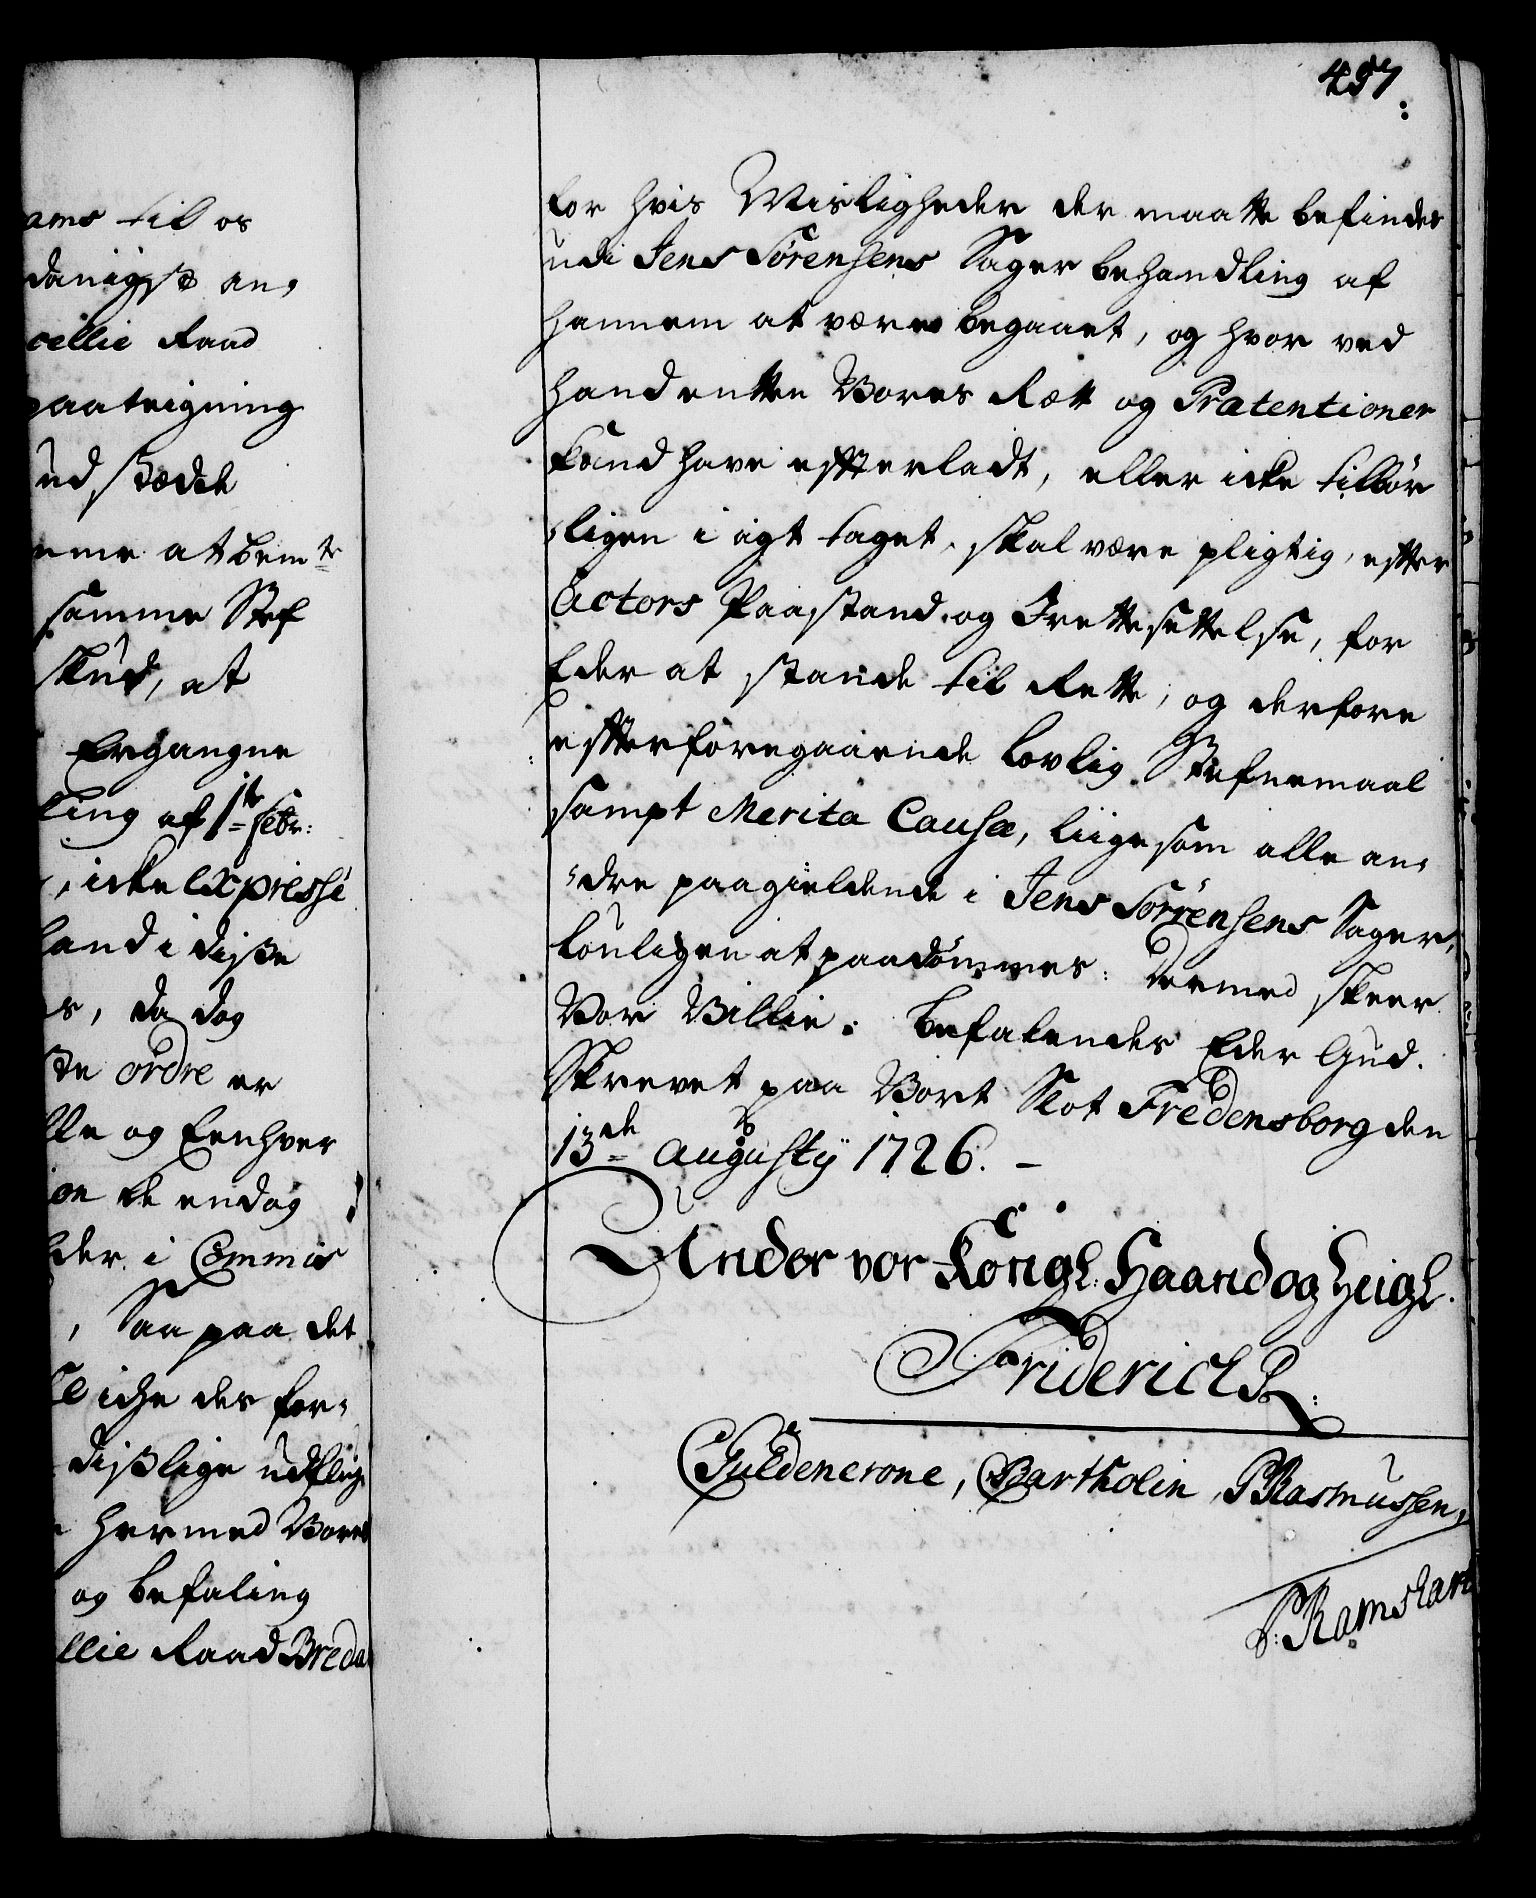 ams til os
danigst an,
cellie Raad
paateigning
ud stædet
enne at bemte
samme Stef
skud, at
Ergangne
ling af 1te Febr:
, icke Expressé
land i diße
es, da dog
ste ordre er
lle og Eenhver
de endog
der i Commis
, Saa paa det
icke des for,
dißlige udflug
hermed Vores
og befaling
llie Raad Breda
497
for hvis Misligheder der maatte befindes
udi Jens Sörensens Sager behandling af
hannem at være begaaet, og hvor ved
hand enten Vores Rætt og Prætentioner
kand have efterladt, eller icke tilbør
,ligen i agt taget, skal være pligtig, efter
Actors Paastand og Irettesettelse, for
Eder at stande til Rette, og derfore
efterforegaaende lovlig Stefnemaal
sampt Merita Causæ, liigesom alle an,
,dre paagieldende i Jens Sörrensens Sager,
louligen at paadömmes: Dermed skeer
Vor Villie. Befalendes Eder Gud.
Skrevet paa Vort Slot Fredensborg den
13de Augustij 1726. –
Under vor Königl: Haand og Zeigl.
Friderich R:
CGuldencrone, CBartholin, PRasmussen,
P: Ramshart